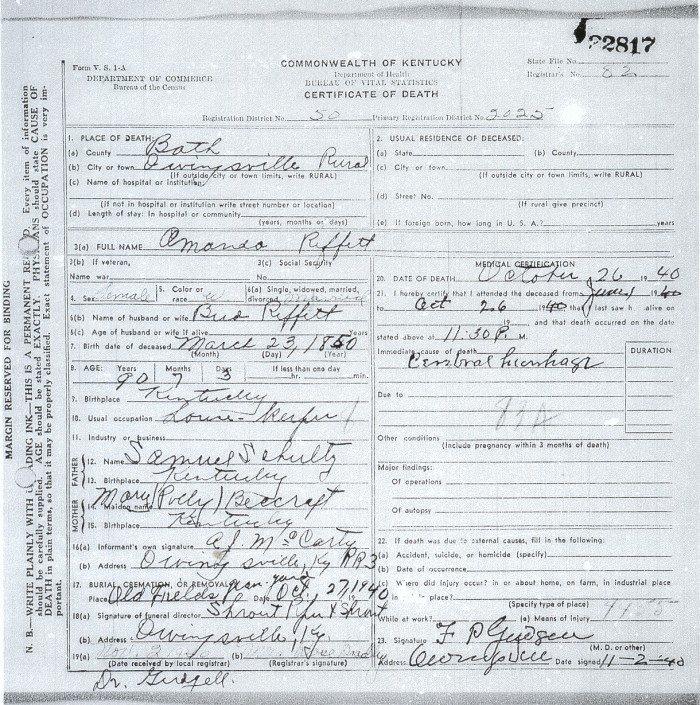 22817
Form V. S. 1-A
DEPARTMENT OF COMMERCE
Bureau of the Census
COMMONWEALTH OF KENTUCKY
Department of Health
BUREAU OF VITAL STATISTICS
CERTIFICATE OF DEATH
State File No.
Registrar's No. 82
Registration District No. 50 Primary Registration District No. 2025
MARGIN RESERVED FOR BINDING
N. B.—WRITE PLAINLY WITH UNFADING INK—THIS IS A PERMANENT RECORD. Every item of information
should be carefully supplied. AGE should be stated EXACTLY. PHYSICIANS should state CAUSE OF
DEATH in plain terms, so that it may be properly classified. Exact statement of OCCUPATION is very im-
portant.
1. PLACE OF DEATH:
(a) County Bath
(b) City or town Owingsville Rural
(If outside city or town limits, write RURAL)
(c) Name of hospital or institution
(If not in hospital or institution write street number or location)
(d) Length of stay: In hospital or community
(years, months or days)
2. USUAL RESIDENCE OF DECEASED:
(a) State (b) County
(c) City or town
(If outside city or town limits, write RURAL)
(d) Street No.
(If rural give precinct)
(e) If foreign born, how long in U. S. A.? years
3(a) FULL NAME Amanda Reffett
3(b) If veteran,
Name war
3(c) Social Security
No
4. Sex Female
5. Color or
race w
6(a) Single, widowed, married,
divorced married
6(b) Name of husband or wife Bud Reffett
6(c) Age of husband or wife if alive Years
7. Birth date of deceased March 23, 1850
(Month) (Day) (Year)
8. AGE: Years Months Days If less than one day
90 7 3 hr. min.
9. Birthplace Kentucky
10. Usual occupation House-Keeper
11. Industry or business
FATHER
12. Name Samuel Schultz
13. Birthplace Kentucky
MOTHER
14. Maiden name Mary (Polly) Beecraft
15. Birthplace Kentucky
16(a) Informant's own signature A. J. McCarty
(b) Address Owingsville, Ky RR3
17. BURIAL, CREMATION, OR REMOVAL
Place Old Fields Date Oct, 27, 1940
18(a) Signature of funeral director Shrout Piper & Shrout
(b) Address Owingsville, Ky
19(a) (b)
(Date received by local registrar) (Registrar's signature)
Dr. Gudgell.
MEDICAL CERTIFICATION
20. DATE OF DEATH October, 26 1940
21. I hereby certify that I attended the deceased from June, 1 1940
to Oct 26 1940 that I last saw h alive on
, 19 , and that death occurred on the date
stated above at 11:30 P. M.
Immediate cause of death DURATION
Cerebral hemorhage
Due to
83A
Other conditions
(Include pregnancy within 3 months of death)
Major findings:
Of operations
Of autopsy
22. If death was due to external causes, fill in the following:
(a) Accident, suicide, or homicide (specify)
(b) Date of occurrence
(c) Where did injury occur? in or about home, on farm, in industrial place
in place?
(Specify type of place)
While at work? (e) Means of injury
23. Signature F P Gudgell
(M. D. or other)
Address Owingsville Date signed 11-2-40